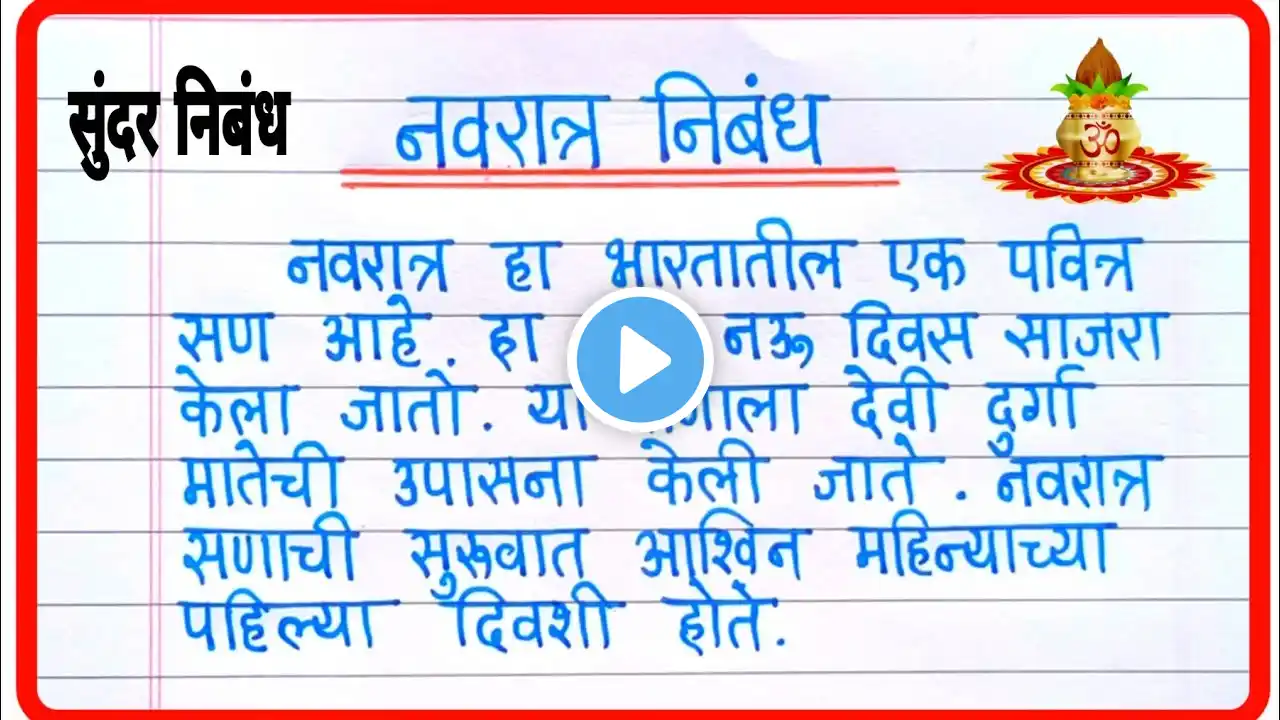 सुंदर निबंध
नवरात्र निबंध
ॐ
नवरात्र हा भारतातील एक पवित्र
सण आहे. हा नऊ दिवस साजरा
केला जातो. या देवी दुर्गा
मातेची उपासना केली जाते. नवरात्र
सणाची सुरूवात आश्विन महिन्याच्या
पहिल्या दिवशी होते.